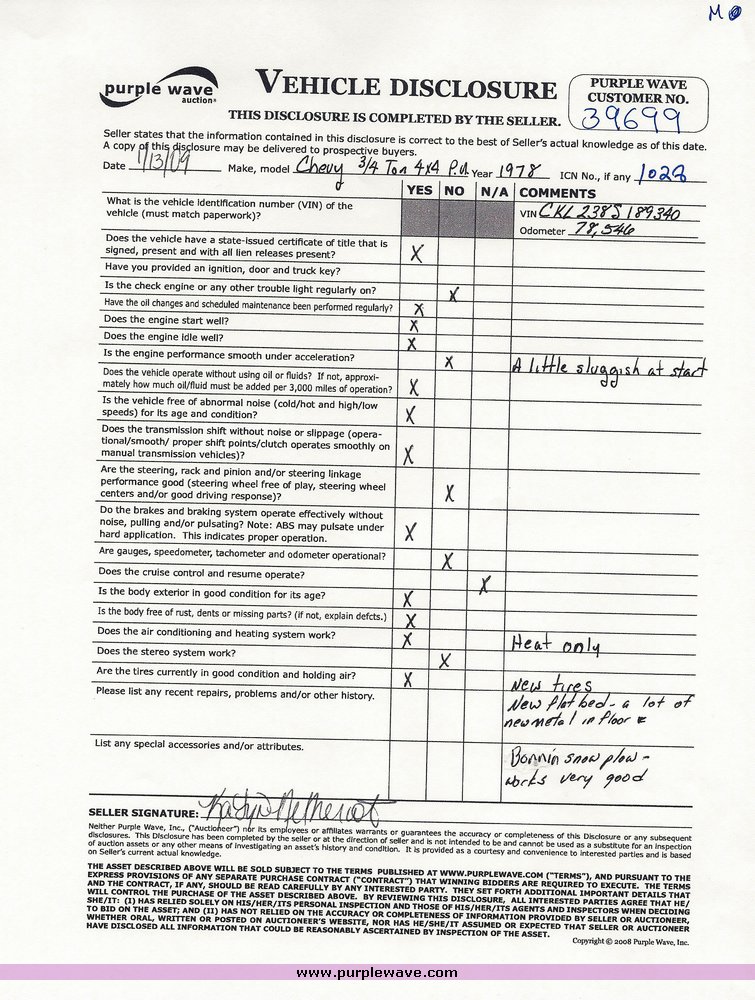 M
purple wave
auction®
VEHICLE DISCLOSURE
PURPLE WAVE
CUSTOMER NO.
39699
THIS DISCLOSURE IS COMPLETED BY THE SELLER.
Seller states that the information contained in this disclosure is correct to the best of Seller's actual knowledge as of this date.
A copy of this disclosure may be delivered to prospective buyers.
Date 1/13/09 Make, model Chevy 3/4 Ton 4x4 P.U. Year 1978 ICN No., if any 1028
YES NO N/A COMMENTS
What is the vehicle identification number (VIN) of the
vehicle (must match paperwork)?
VIN CKL238S189340
Odometer 78,546
Does the vehicle have a state-issued certificate of title that is
signed, present and with all lien releases present? X
Have you provided an ignition, door and truck key?
Is the check engine or any other trouble light regularly on? X
Have the oil changes and scheduled maintenance been performed regularly? X
Does the engine start well? X
Does the engine idle well? X
Is the engine performance smooth under acceleration? X A little sluggish at start
Does the vehicle operate without using oil or fluids? If not, approxi-
mately how much oil/fluid must be added per 3,000 miles of operation? X
Is the vehicle free of abnormal noise (cold/hot and high/low
speeds) for its age and condition? X
Does the transmission shift without noise or slippage (opera-
tional/smooth/ proper shift points/clutch operates smoothly on
manual transmission vehicles)? X
Are the steering, rack and pinion and/or steering linkage
performance good (steering wheel free of play, steering wheel
centers and/or good driving response)? X
Do the brakes and braking system operate effectively without
noise, pulling and/or pulsating? Note: ABS may pulsate under
hard application. This indicates proper operation. X
Are gauges, speedometer, tachometer and odometer operational? X
Does the cruise control and resume operate? X
Is the body exterior in good condition for its age? X
Is the body free of rust, dents or missing parts? (if not, explain defcts.) X
Does the air conditioning and heating system work? X Heat only
Does the stereo system work? X
Are the tires currently in good condition and holding air? X New tires
Please list any recent repairs, problems and/or other history.
New flat bed - a lot of
new metal in floor
List any special accessories and/or attributes.
Bonnin snow plow -
works very good
SELLER SIGNATURE:
Neither Purple Wave, Inc., ("Auctioneer") nor its employees or affiliates warrants or guarantees the accuracy or completeness of this Disclosure or any subsequent
disclosures. This Disclosure has been completed by the seller or at the direction of seller and is not intended to be and cannot be used as a substitute for an inspection
of auction assets or any other means of investigating an asset's history and condition. It is provided as a courtesy and convenience to interested parties and is based
on Seller's current actual knowledge.
THE ASSET DESCRIBED ABOVE WILL BE SOLD SUBJECT TO THE TERMS PUBLISHED AT WWW.PURPLEWAVE.COM ("TERMS"), AND PURSUANT TO THE
EXPRESS PROVISIONS OF ANY SEPARATE PURCHASE CONTRACT ("CONTRACT") THAT WINNING BIDDERS ARE REQUIRED TO EXECUTE. THE TERMS
AND THE CONTRACT, IF ANY, SHOULD BE READ CAREFULLY BY ANY INTERESTED PARTY. THEY SET FORTH ADDITIONAL IMPORTANT DETAILS THAT
WILL CONTROL THE PURCHASE OF THE ASSET DESCRIBED ABOVE. BY REVIEWING THIS DISCLOSURE, ALL INTERESTED PARTIES AGREE THAT HE/
SHE/IT: (I) HAS RELIED SOLELY ON HIS/HER/ITS PERSONAL INSPECTION AND THOSE OF HIS/HER/ITS AGENTS AND INSPECTORS WHEN DECIDING
TO BID ON THE ASSET; AND (II) HAS NOT RELIED ON THE ACCURACY OR COMPLETENESS OF INFORMATION PROVIDED BY SELLER OR AUCTIONEER,
WHETHER ORAL, WRITTEN OR POSTED ON AUCTIONEER'S WEBSITE, NOR HAS HE/SHE/IT ASSUMED OR EXPECTED THAT SELLER OR AUCTIONEER
HAVE DISCLOSED ALL INFORMATION THAT COULD BE REASONABLY ASCERTAINED BY INSPECTION OF THE ASSET.
Copyright © 2008 Purple Wave, Inc.
www.purplewave.com